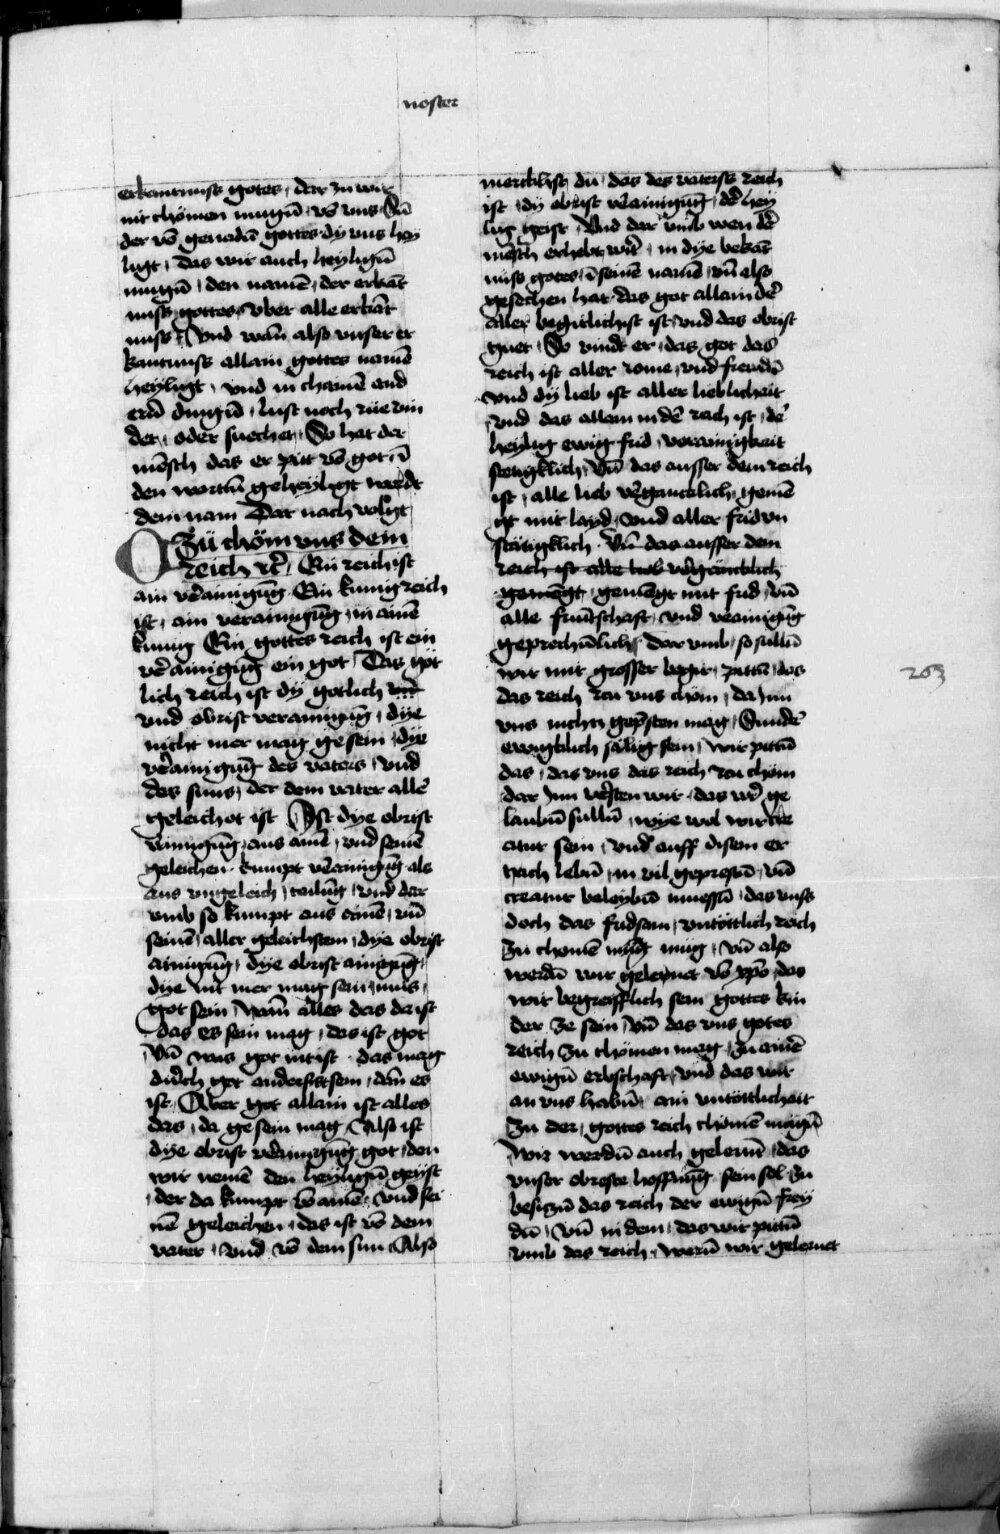 noster
erkantnuss gotes, dar zu wir
nit chömen mugū, vō vns, Sū
der vō genadū gottes dy vns hey
ligt, das wir auch heyligū
mugū, den namē, der erkāt
nuss gottes, vber alle erkāt
nuss, Vnd wān also vnser er
kantnuss allain gottes namē
heyligt, vnd in chainē and
erū dingū, lust noch rue vin
det, oder suechet, So hat der
mēsch das er pitt vō got ī
den wortū geheyligt werdt
dein nam Dar nach volgt
Zü chöm vns dein
reich rc̄, Ein reich ist
ain vērainigūg Ein kunigreich
ist, ain verainigūg, in ainē
kunig Ein gottes reich ist ein
vērainigūg ein got, Das göt
lich reich ist dÿ gotlich
vnd obrist verainigūg, dye
nicht mer mag gesein, dye
vērainigūg des vaters, vnd
des suns, der dem vater allē
geleichot ist Ist dye obrist
ainigūg, aus ainē, vnd seinē
geleichen kumpt vērainigūg als
aus vngeleich, tailūg, vnd dar
vmb so kumpt aus einē, vū
seinē, aller geleichstem, dye obrist
ainigūg, dye obrist ainigūg,
dye nit mer mag sein, mus,
got sein, Wān alles das da ist
das es sein mag, das ist got
Vū was got nit ist das mag
durch got anderst sein, dān es
ist, Aber got allain ist alles
das, da gesein mag, Also ist
dye obrist vērainigūg got, den
wir nenē den heyligū geyst
der da kumpt vō ainē, vnd sei
nē geleichen, das ist vō dem
vater, vnd vō dem sun, Also
merckhst du, das des vaterss reich
ist, dÿ obrist vērainigūg, dē hey
lig geist, Vnd dar vmb wen dē
mēsch erhebt wirt, in dye bekāt
nuss gotes, ī seinē namē, vū also
gesechen hat das got allain dē
aller begirlichist ist, vnd das obrist
guet, So vindt er, das got das
reich ist aller rome, vnd freudū
vnd dÿ lieb ist aller lieblichait
vnd das allain in dē reich ist, dē
heylig ewig frid, verainigkait
stetigklich, Vū das ausser dem reich
ist, alle lieb vērganckklich, gemē
gt mit layd, vnd aller frid vn
stätigklich Vū das ausser dem
reich ist alle lieb vērgäncklich
gemēgt, gemēgt mit frid, vū
alle früntschaft, vnd verainigūg
geprechūdlich, dar vmb, so sullū
wir mit grosser begir, pittū, das
das reich zu vns chöm, da Inn
vns nichtz gepresten mag, Sundē
ewigklich sälig sein, wir pittū
das, das vns das reich zu chöm
dar Inn versten wir, das wir ge
laubū sullū, wye wol wir
atur sein, vnd auff disem er
trich lebū, in vil geprestū, vū
creatur beleybū muessū, das vnss
doch das fridsam, vntöttlich reich
zu chomē mag, vū also
werdū wir gelernet vō xpō, das
wir begreifflich sein gottes kin
der ze sein, Vū das vns gotes
reich zu chömen mag, zu ainē
ewigū erbschaft, vnd das wir
an vns habū, ain vntöttlichait
zu der, gottes reich chömē mügū
Wir werdū auch gelernū, das
vnser obreste hoffnūg sein sol zu
besiczū das reich der ewigū frey
dū, vū in dem, das wir pittū
vmb das reich, werū wir gelernet
203